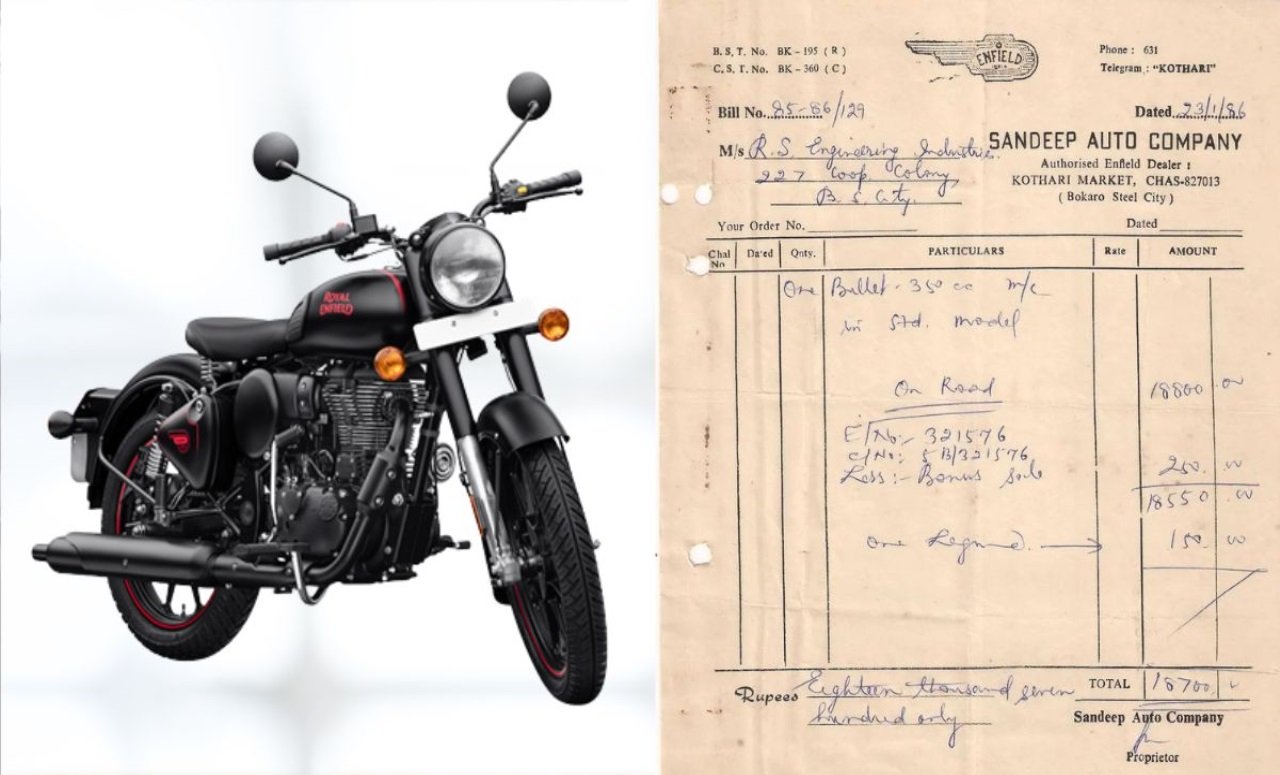 ROYAL
ENFIELD
B. S. T. No. BK - 195 ( R )
C. S. T. No. BK - 360 ( C )
ENFIELD
Phone : 631
Telegram : "KOTHARI"
Bill No. 85-86/129
Dated 23/1/86
M/s R.S. Engineering Industries
227 Coop. Colony,
B. S. City.
SANDEEP AUTO COMPANY
Authorised Enfield Dealer :
KOTHARI MARKET, CHAS-827013
( Bokaro Steel City )
Your Order No.
Dated
Chal No Dated Qnty. PARTICULARS Rate AMOUNT
One Bullet - 350 cc m/c
in Std. model
On Road 18800 .00
E/No:- 321576
C/No:- 5B/321576
Less:- Bonus 250. 00
18550 .00
one 150. 00
Rupees Eighteen thousand seven
hundred only
TOTAL 18700
Sandeep Auto Company
Proprietor